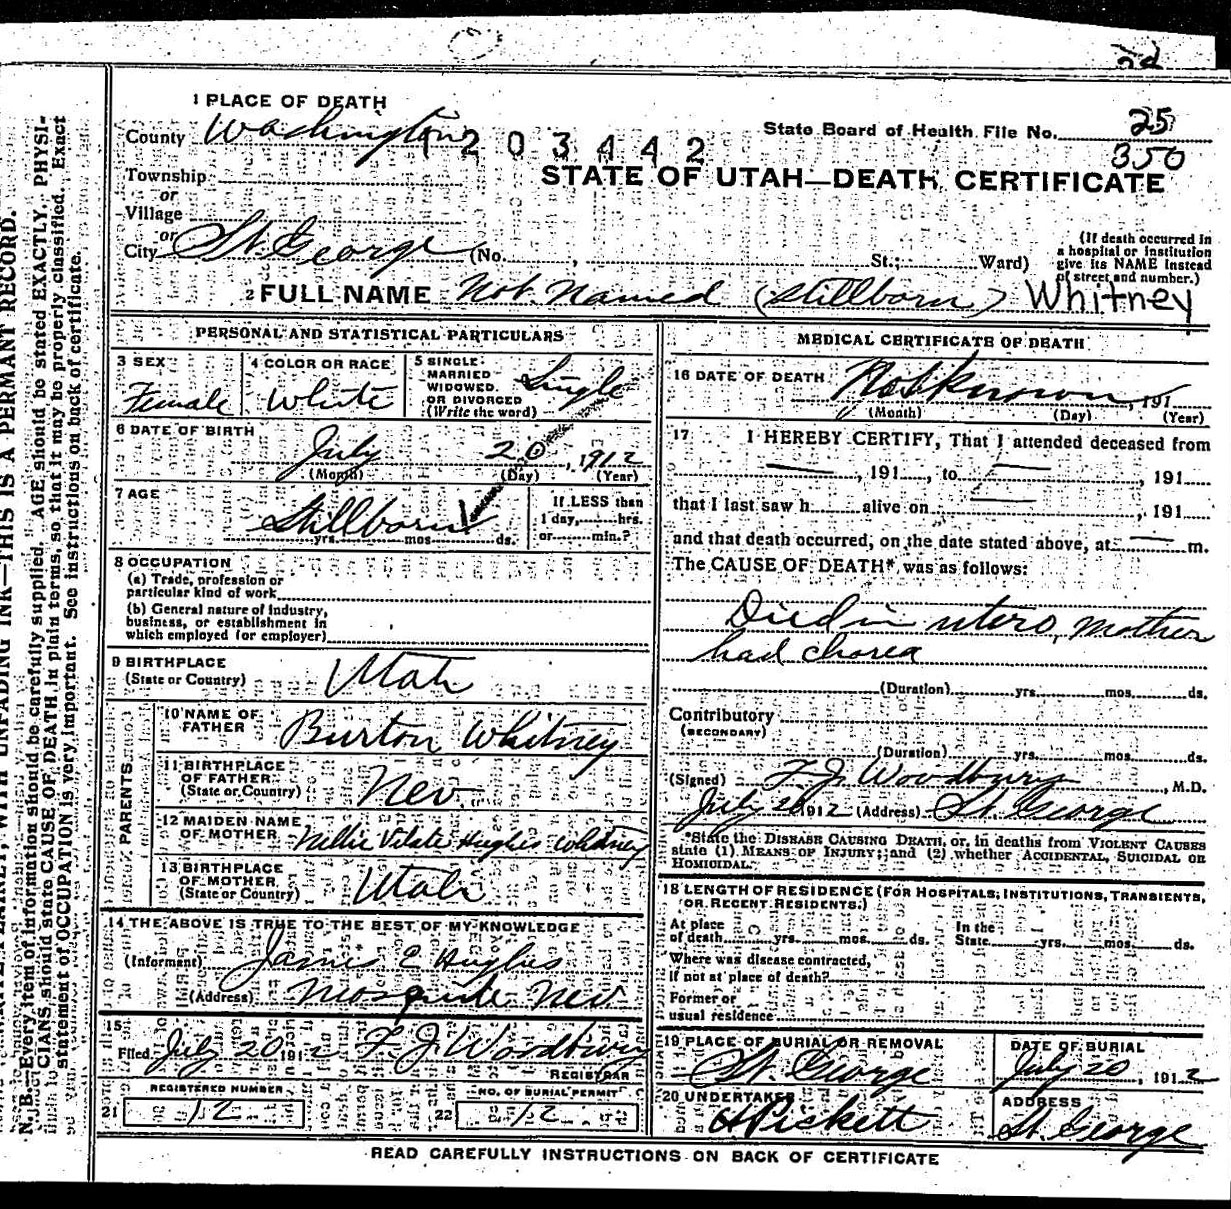 2d
1 PLACE OF DEATH
County Washington
1203442
State Board of Health File No. 25
350
STATE OF UTAH—DEATH CERTIFICATE
Township
or
Village
or
City St. George (No. , St.; Ward)
(If death occurred in
a hospital or institution
give its NAME instead
of street and number.)
2 FULL NAME Not Named (Stillborn) Whitney
PERSONAL AND STATISTICAL PARTICULARS
3 SEX
Female
4 COLOR OR RACE
White
5 SINGLE
MARRIED
WIDOWED
OR DIVORCED
(Write the word)
Single
6 DATE OF BIRTH
July 20, 1912
(Month) (Day) (Year)
7 AGE
Stillborn
yrs. mos. ds.
If LESS than
1 day, hrs.
or min.?
8 OCCUPATION
(a) Trade, profession or
particular kind of work
(b) General nature of industry,
business, or establishment in
which employed (or employer)
9 BIRTHPLACE
(State or Country)
Utah
PARENTS
10 NAME OF
FATHER
Burton Whitney
11 BIRTHPLACE
OF FATHER
(State or Country)
Nev
12 MAIDEN NAME
OF MOTHER
Nellie Vilate Hughes Whitney
13 BIRTHPLACE
OF MOTHER
(State or Country)
Utah
14 THE ABOVE IS TRUE TO THE BEST OF MY KNOWLEDGE
(Informant) James E Hughes
(Address) Mosquite Nev
15
Filed July 20 1912 F. J. Woodbury
REGISTRAR
REGISTERED NUMBER
21 12
NO. OF BURIAL PERMIT
22 12
MEDICAL CERTIFICATE OF DEATH
16 DATE OF DEATH
Not Known, 191
(Month) (Day) (Year)
17 I HEREBY CERTIFY, That I attended deceased from
— , 191 , to — , 191
that I last saw h alive on — , 191
and that death occurred, on the date stated above, at — m.
The CAUSE OF DEATH* was as follows:
Died in utero, Mother
had chorea
(Duration) yrs. mos. ds.
Contributory
(SECONDARY)
(Duration) yrs. mos. ds.
(Signed) F. J. Woodbury, M.D.
July 20 1912 (Address) St. George
*State the DISEASE CAUSING DEATH, or, in deaths from VIOLENT CAUSES
state (1) MEANS OF INJURY; and (2) whether ACCIDENTAL, SUICIDAL OR
HOMICIDAL.
18 LENGTH OF RESIDENCE (FOR HOSPITALS, INSTITUTIONS, TRANSIENTS,
OR RECENT RESIDENTS.)
At place
of death yrs. mos. ds.
In the
State yrs. mos. ds.
Where was disease contracted,
if not at place of death?
Former or
usual residence
19 PLACE OF BURIAL OR REMOVAL
St. George
DATE OF BURIAL
July 20, 1912
20 UNDERTAKER
H Pickett
ADDRESS
St. George
READ CAREFULLY INSTRUCTIONS ON BACK OF CERTIFICATE
WITH UNFADING INK—THIS IS A PERMANT RECORD.
N. B.—Every item of information should be carefully supplied. AGE should be stated EXACTLY. PHYSI-
CIANS should state CAUSE OF DEATH in plain terms, so that it may be properly classified. Exact
statement of OCCUPATION is very important. See instructions on back of certificate.